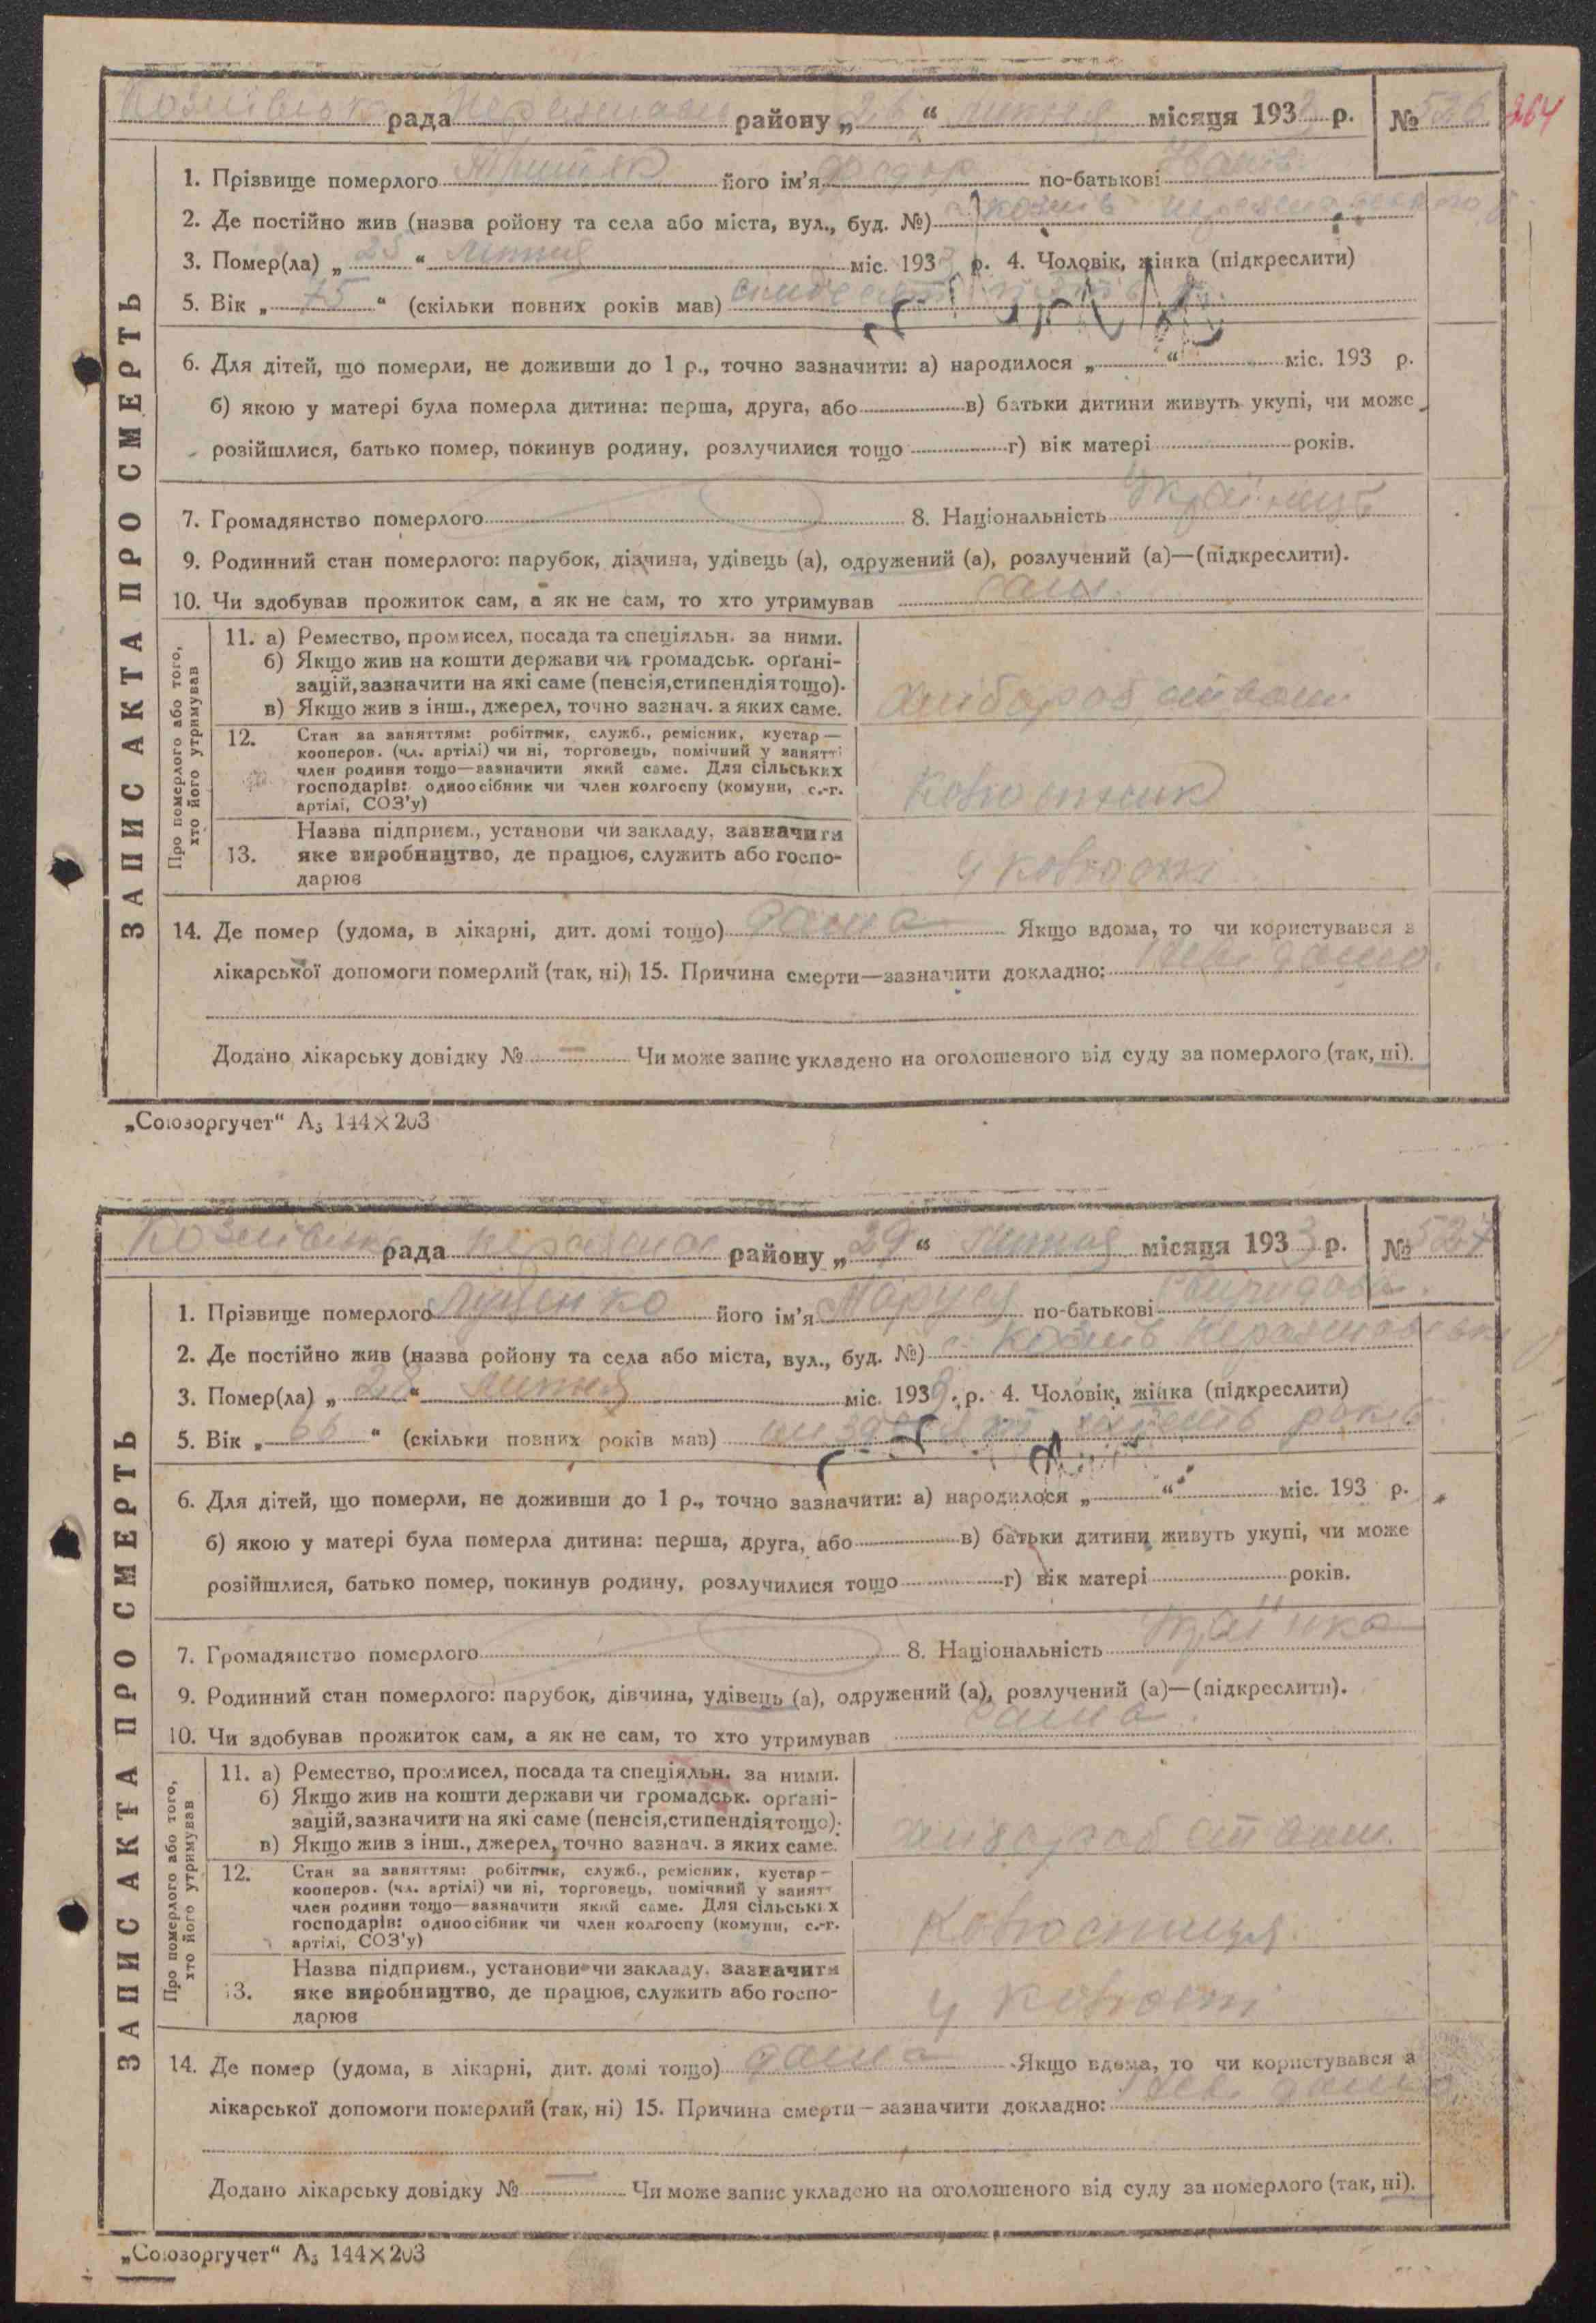 Козлівська рада Переяслав району „ 26 “ липня місяця 1933 р. № 526 264
ЗАПИС АКТА ПРО СМЕРТЬ
1. Прізвище померлого його ім'я Федор по-батькові Іванів
2. Де постійно жив (назва ройону та села або міста, вул., буд. №) с. Козлів
3. Помер(ла) „ 25 “ липня міс. 1933 р. 4. Чоловік, жінка (підкреслити)
5. Вік „ 75 “ (скільки повних років мав) симдесят пять
6. Для дітей, що померли, не доживши до 1 р., точно зазначити: а) народилося „ “ міс. 193 р.
б) якою у матері була померла дитина: перша, друга, або в) батьки дитини живуть укупі, чи може
розійшлися, батько помер, покинув родину, розлучилися тощо г) вік матері років.
7. Громадянство померлого 8. Національність Українць
9. Родинний стан померлого: парубок, дівчина, удівець (а), одружений (а), розлучений (а)—(підкреслити).
10. Чи здобував прожиток сам, а як не сам, то хто утримував сам.
Про померлого або того, хто його утримував
11. а) Ремество, промисел, посада та спеціяльн. за ними.
б) Якщо жив на кошти держави чи громадськ. органі-
зацій, зазначити на які саме (пенсія, стипендія тощо).
в) Якщо жив з інш., джерел, точно зазнач. з яких саме.
12. Стан за заняттям: робітник, служб., ремісник, кустар—
кооперов. (чл. артілі) чи ні, торговець, помічний у занятті
член родини тощо—зазначити який саме. Для сільських
господарів: одноосібник чи член колгоспу (комуни, с.-г.
артілі, СОЗ'у)
Назва підприєм., установи чи закладу, зазначити
13. яке виробництво, де працює, служить або госпо-
дарює
14. Де помер (удома, в лікарні, дит. домі тощо) дома Якщо вдома, то чи користувався з
лікарської допомоги померлий (так, ні) 15. Причина смерти—зазначити докладно: Невідомо.
Додано лікарську довідку № — Чи може запис укладено на оголошеного від суду за померлого (так, ні).
„Союзоргучет“ А₅ 144×203
Козлівська рада Переяслав району „ 29 “ липня місяця 1933 р. № 527
ЗАПИС АКТА ПРО СМЕРТЬ
1. Прізвище померлого Луценко його ім'я Маруся по-батькові Свиридова.
2. Де постійно жив (назва ройону та села або міста, вул., буд. №) с. Козлів Переяславськ
3. Помер(ла) „ 28 “ липня міс. 1933 р. 4. Чоловік, жінка (підкреслити)
5. Вік „ 66 “ (скільки повних років мав) шиздесят шість років
6. Для дітей, що померли, не доживши до 1 р., точно зазначити: а) народилося „ “ міс. 193 р.
б) якою у матері була померла дитина: перша, друга, або в) батьки дитини живуть укупі, чи може
розійшлися, батько помер, покинув родину, розлучилися тощо г) вік матері років.
7. Громадянство померлого 8. Національність
9. Родинний стан померлого: парубок, дівчина, удівець (а), одружений (а), розлучений (а)—(підкреслити).
10. Чи здобував прожиток сам, а як не сам, то хто утримував сама.
Про померлого або того, хто його утримував
11. а) Ремество, промисел, посада та спеціяльн. за ними.
б) Якщо жив на кошти держави чи громадськ. органі-
зацій, зазначити на які саме (пенсія, стипендія тощо).
в) Якщо жив з інш., джерел, точно зазнач. з яких саме.
12. Стан за заняттям: робітник, служб., ремісник, кустар—
кооперов. (чл. артілі) чи ні, торговець, помічний у занятт
член родини тощо—зазначити який саме. Для сільських
господарів: одноосібник чи член колгоспу (комуни, с.-г.
артілі, СОЗ'у)
Назва підприєм., установи чи закладу, зазначити
13. яке виробництво, де працює, служить або госпо-
дарює
14. Де помер (удома, в лікарні, дит. домі тощо) дома Якщо вдома, то чи користувався з
лікарської допомоги померлий (так, ні) 15. Причина смерти—зазначити докладно: Невідомо
Додано лікарську довідку № — Чи може запис укладено на оголошеного від суду за померлого (так, ні).
„Союзоргучет“ А₅ 144×203